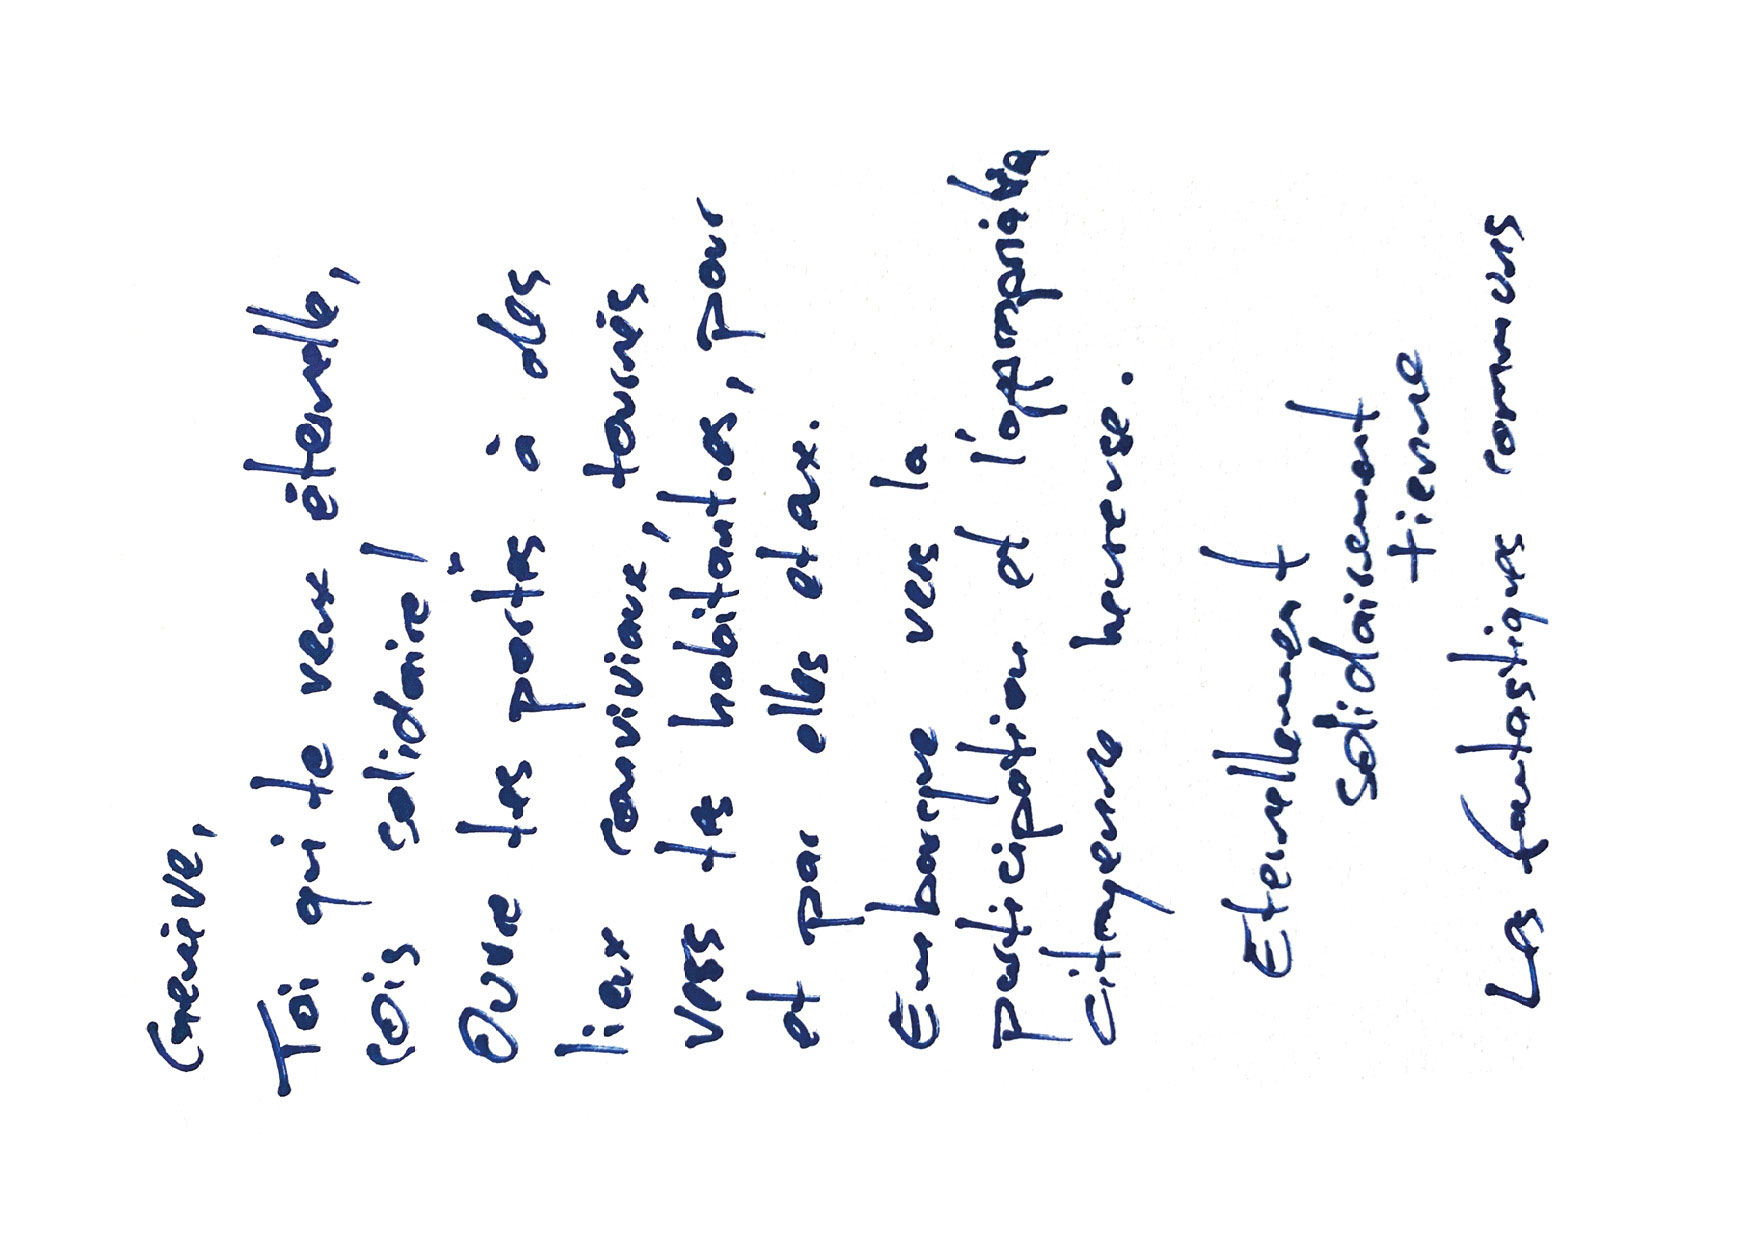 Genève,
Toi qui te veux éternelle,
sois solidaire !
Ouvre tes portes à des
lieux conviviaux, tournés
vers tes habitant.es, pour
et par elles et eux.
Embarque vers la
participation et
citoyenne heureuse.
Eternellement
solidairement
tienne
Les fantastiques communs